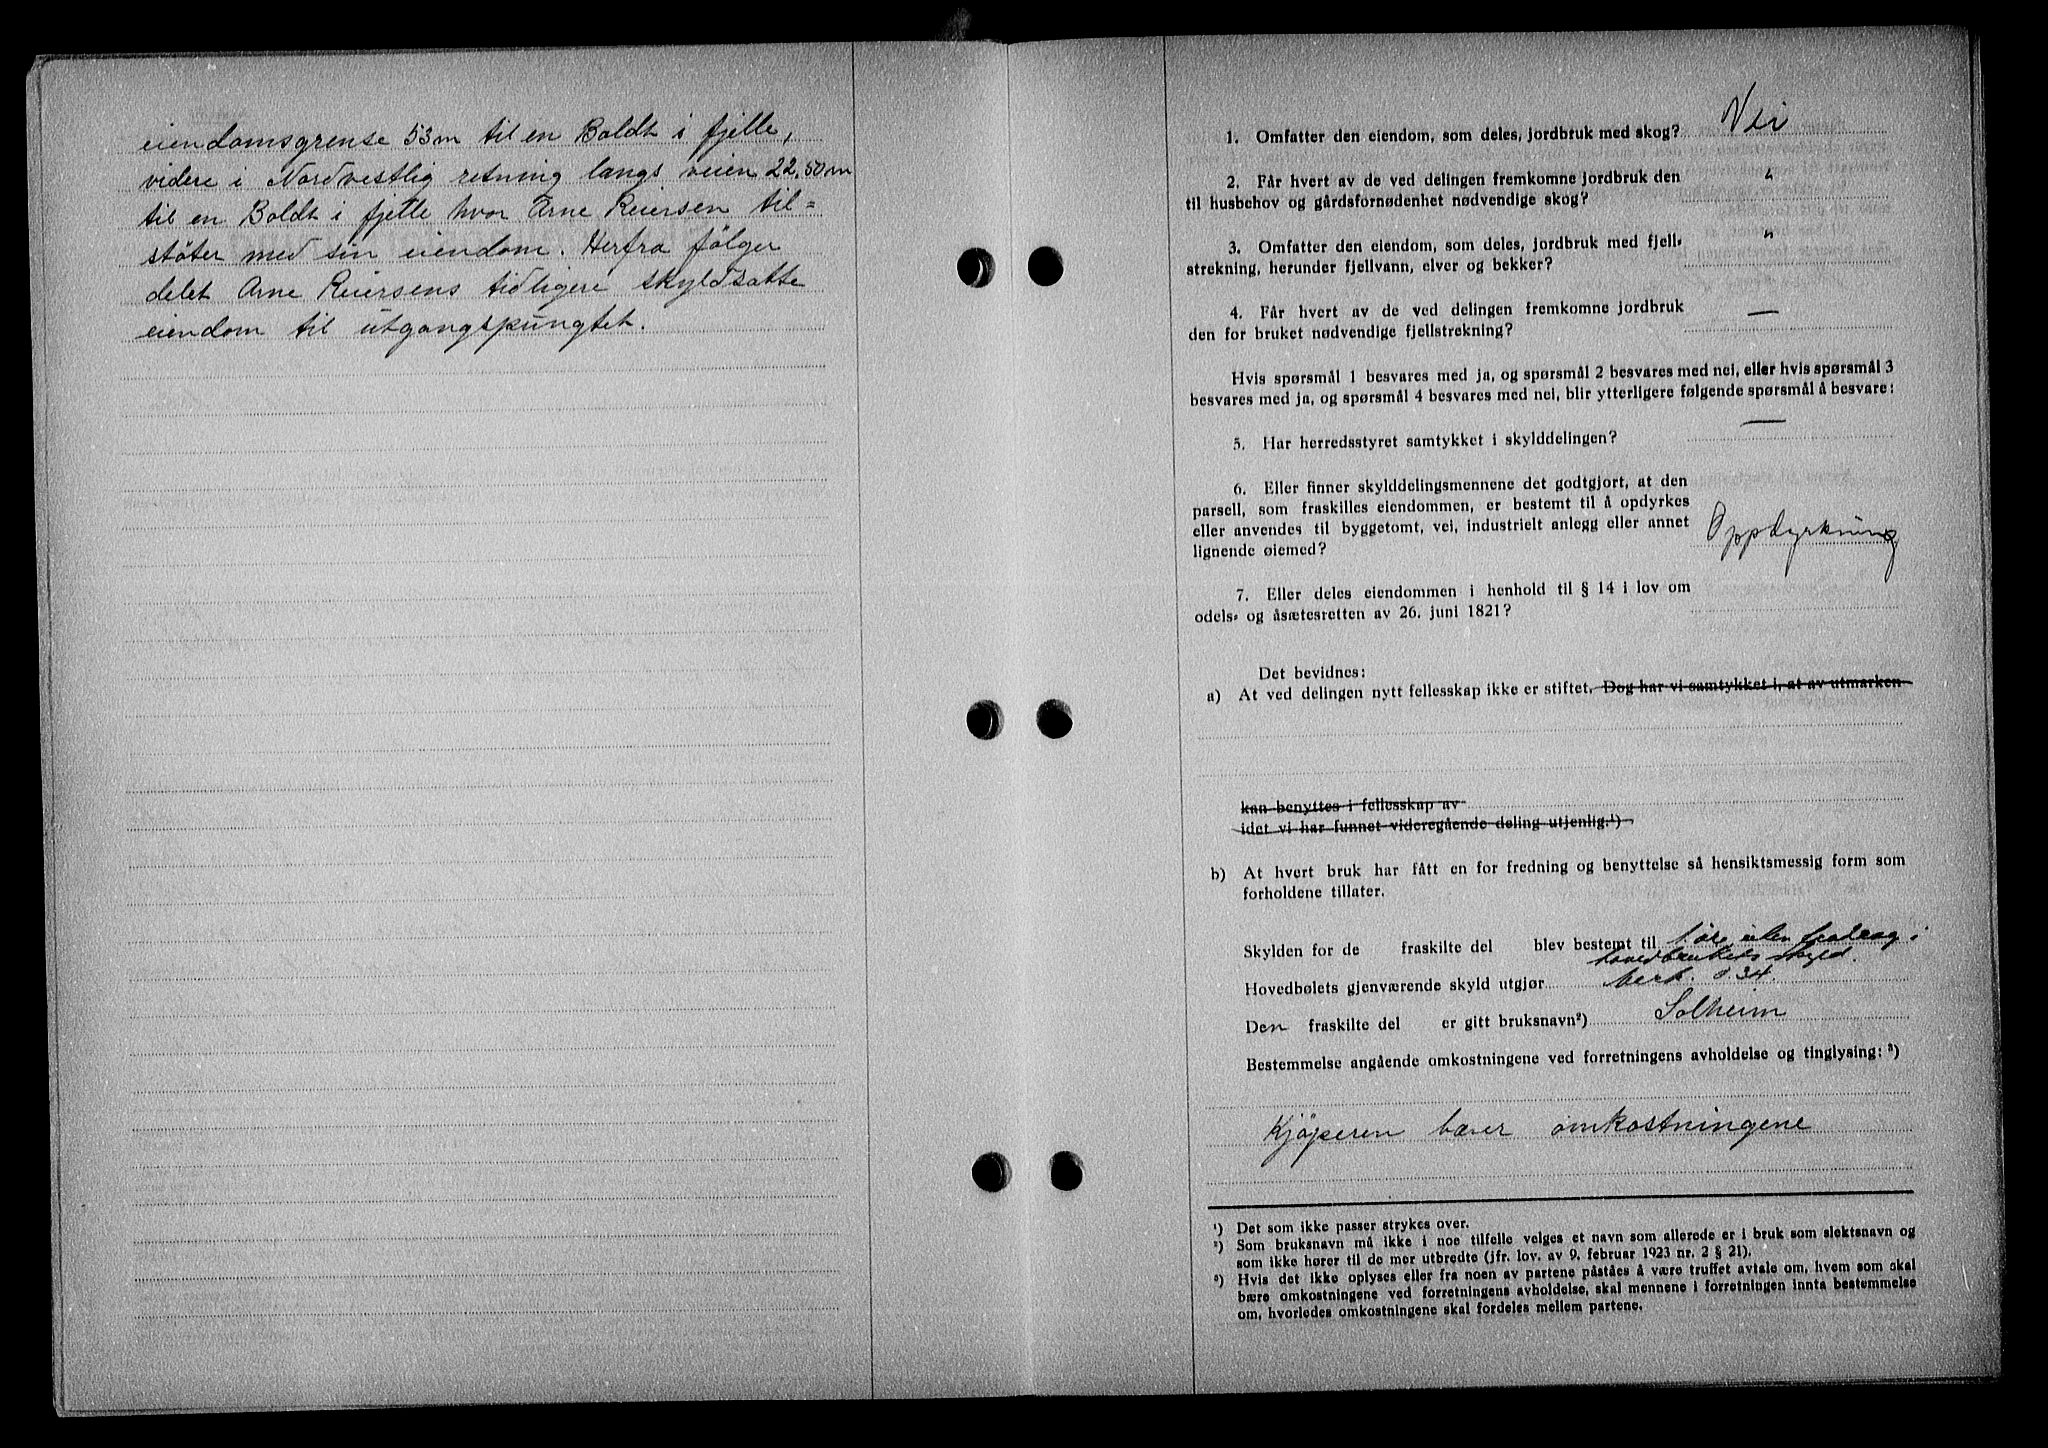 eiendomsgrense 53m til en Boldt i fjelle,
videre i Nordvestlig retning langs veien 22,50m
til en Boldt i fjelle hvor Arne Reiersen til=
støter med sin eiendom. Herfra følger
delet Arne Reiersens tidligere skyldsatte
eiendom til utgangspungtet.
1. Omfatter den eiendom, som deles, jordbruk med skog? Nei
2. Får hvert av de ved delingen fremkomne jordbruk den "
til husbehov og gårdsfornødenhet nødvendige skog?
3. Omfatter den eiendom, som deles, jordbruk med fjell- "
strekning, herunder fjellvann, elver og bekker?
4. Får hvert av de ved delingen fremkomne jordbruk —
den for bruket nødvendige fjellstrekning?
Hvis spørsmål 1 besvares med ja, og spørsmål 2 besvares med nei, eller hvis spørsmål 3
besvares med ja, og spørsmål 4 besvares med nei, blir ytterligere følgende spørsmål å besvare:
5. Har herredsstyret samtykket i skylddelingen? —
6. Eller finner skylddelingsmennene det godtgjort, at den
parsell, som fraskilles eiendommen, er bestemt til å opdyrkes
eller anvendes til byggetomt, vei, industrielt anlegg eller annet Oppdyrkning
lignende øiemed?
7. Eller deles eiendommen i henhold til § 14 i lov om
odels- og åsætesretten av 26. juni 1821?
Det bevidnes:
a) At ved delingen nytt fellesskap ikke er stiftet. Dog har vi samtykket i, at av utmarken
kan benyttes i fellesskap av
idet vi har funnet videregående deling utjenlig.¹)
b) At hvert bruk har fått en for fredning og benyttelse så hensiktsmessig form som
forholdene tillater.
Skylden for de fraskilte del blev bestemt til 1 øre uten fradrag i
hovedbrukets skyld.
Hovedbølets gjenværende skyld utgjør merk. 0.34.
Den fraskilte del er gitt bruksnavn²) Solheim
Bestemmelse angående omkostningene ved forretningens avholdelse og tinglysing: ³)
Kjøperen bærer omkostningene
¹) Det som ikke passer strykes over.
²) Som bruksnavn må ikke i noe tilfelle velges et navn som allerede er i bruk som slektsnavn og
som ikke hører til de mer utbredte (jfr. lov. av 9. februar 1923 nr. 2 § 21).
³) Hvis det ikke oplyses eller fra noen av partene påståes å være truffet avtale om, hvem som skal
bære omkostningene ved forretningens avholdelse, skal mennene i forretningen innta bestemmelse
om, hvorledes omkostningene skal fordeles mellem partene.